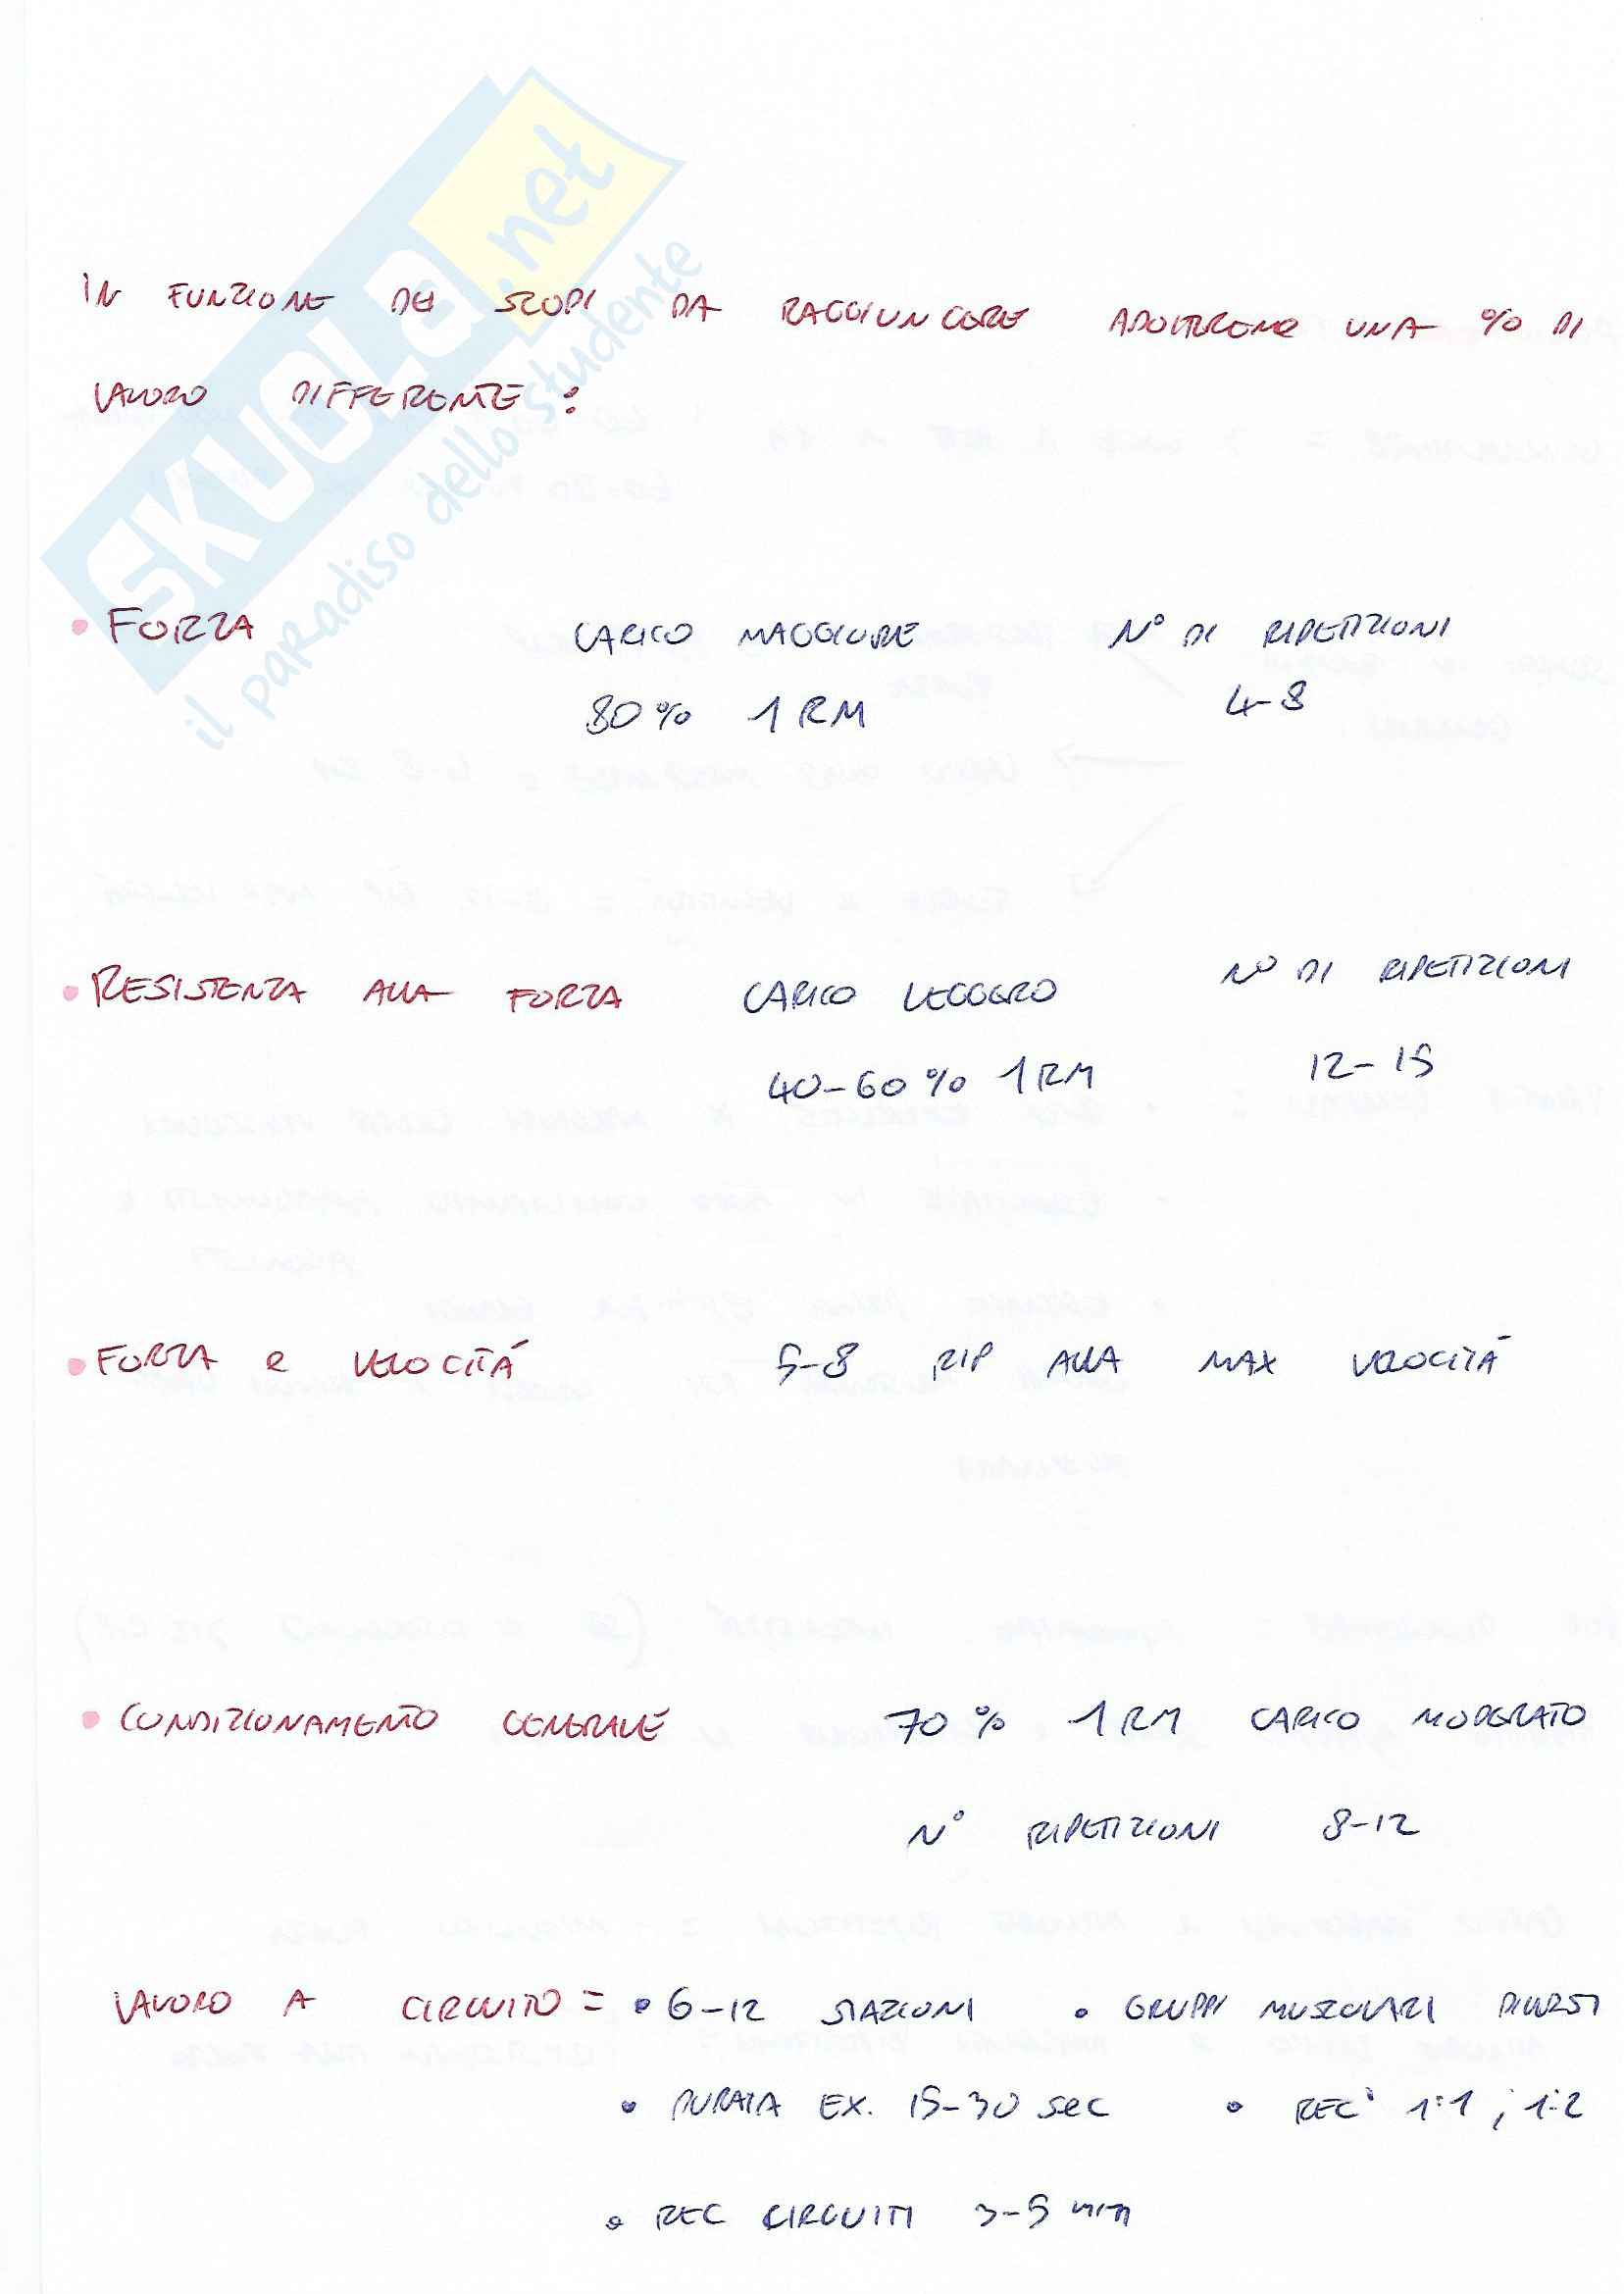 SKUOLA.net
il paradiso dello studente
IN FUNZIONE DEI SCOPI DA RAGGIUNGERE ADOTTEREMO UNA % DI
LAVORO DIFFERENTE :
• FORZA CARICO MAGGIORE N° DI RIPETIZIONI
80% 1RM 4-8
• RESISTENZA ALLA FORZA CARICO LEGGERO N° DI RIPETIZIONI
40-60% 1RM 12-15
• FORZA e VELOCITÁ 5-8 RIP ALLA MAX VELOCITÁ
• CONDIZIONAMENTO GENERALE 70% 1RM CARICO MODERATO
N° RIPETIZIONI 8-12
LAVORO A CIRCUITO = • 6-12 STAZIONI • GRUPPI MUSCOLARI DIVERSI
• DURATA EX. 15-30 sec • REC 1:1 ; 1:2
• REC CIRCUITI 3-5 min